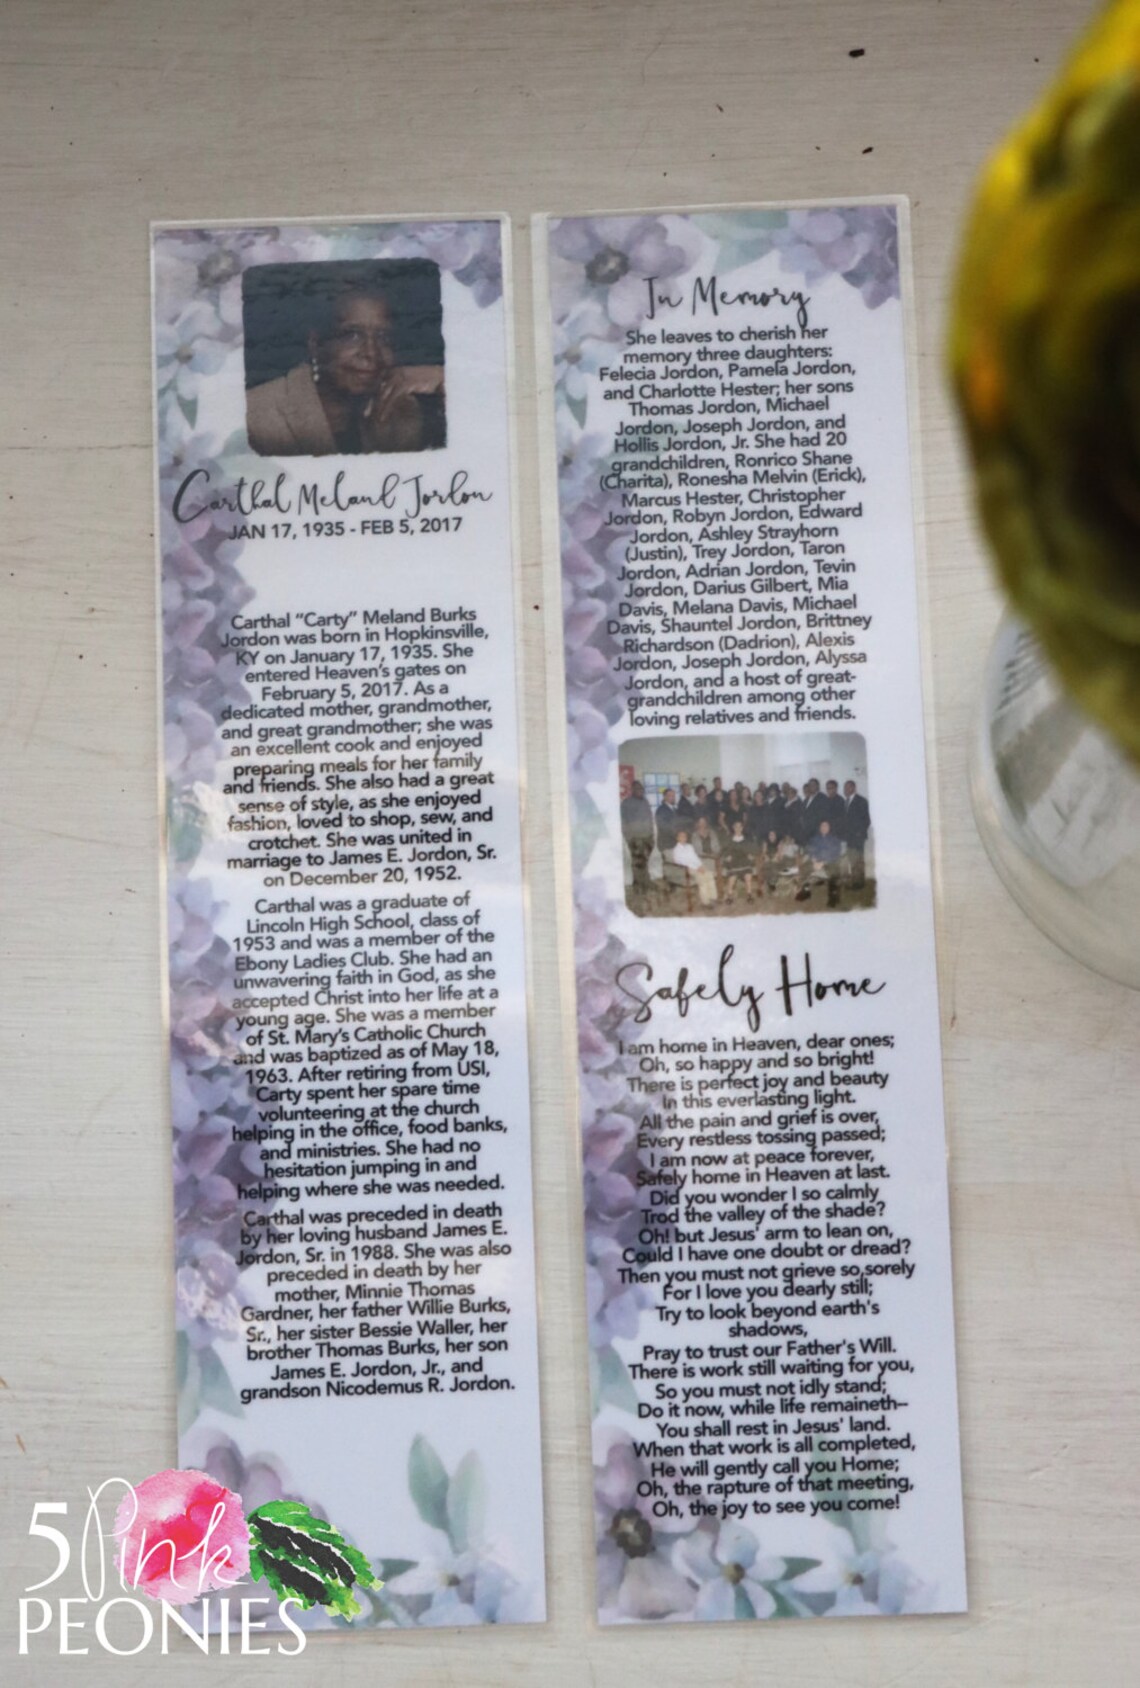 Carthal Meland Jordon
JAN 17, 1935 - FEB 5, 2017
Carthal “Carty” Meland Burks
Jordon was born in Hopkinsville,
KY on January 17, 1935. She
entered Heaven’s gates on
February 5, 2017. As a
dedicated mother, grandmother,
and great grandmother; she was
an excellent cook and enjoyed
preparing meals for her family
and friends. She also had a great
sense of style, as she enjoyed
fashion, loved to shop, sew, and
crotchet. She was united in
marriage to James E. Jordon, Sr.
on December 20, 1952.
Carthal was a graduate of
Lincoln High School, class of
1953 and was a member of the
Ebony Ladies Club. She had an
unwavering faith in God, as she
accepted Christ into her life at a
young age. She was a member
of St. Mary’s Catholic Church
and was baptized as of May 18,
1963. After retiring from USI,
Carty spent her spare time
volunteering at the church
helping in the office, food banks,
and ministries. She had no
hesitation jumping in and
helping where she was needed.
Carthal was preceded in death
by her loving husband James E.
Jordon, Sr. in 1988. She was also
preceded in death by her
mother, Minnie Thomas
Gardner, her father Willie Burks,
Sr., her sister Bessie Waller, her
brother Thomas Burks, her son
James E. Jordon, Jr., and
grandson Nicodemus R. Jordon.
In Memory
She leaves to cherish her
memory three daughters:
Felecia Jordon, Pamela Jordon,
and Charlotte Hester; her sons
Thomas Jordon, Michael
Jordon, Joseph Jordon, and
Hollis Jordon, Jr. She had 20
grandchildren, Ronrico Shane
(Charita), Ronesha Melvin (Erick),
Marcus Hester, Christopher
Jordon, Robyn Jordon, Edward
Jordon, Ashley Strayhorn
(Justin), Trey Jordon, Taron
Jordon, Adrian Jordon, Tevin
Jordon, Darius Gilbert, Mia
Davis, Melana Davis, Michael
Davis, Shauntel Jordon, Brittney
Richardson (Dadrion), Alexis
Jordon, Joseph Jordon, Alyssa
Jordon, and a host of great-
grandchildren among other
loving relatives and friends.
Safely Home
I am home in Heaven, dear ones;
Oh, so happy and so bright!
There is perfect joy and beauty
In this everlasting light.
All the pain and grief is over,
Every restless tossing passed;
I am now at peace forever,
Safely home in Heaven at last.
Did you wonder I so calmly
Trod the valley of the shade?
Oh! but Jesus' arm to lean on,
Could I have one doubt or dread?
Then you must not grieve so sorely
For I love you dearly still;
Try to look beyond earth's
shadows,
Pray to trust our Father's Will.
There is work still waiting for you,
So you must not idly stand;
Do it now, while life remaineth--
You shall rest in Jesus' land.
When that work is all completed,
He will gently call you Home;
Oh, the rapture of that meeting,
Oh, the joy to see you come!
5 Pink
PEONIES